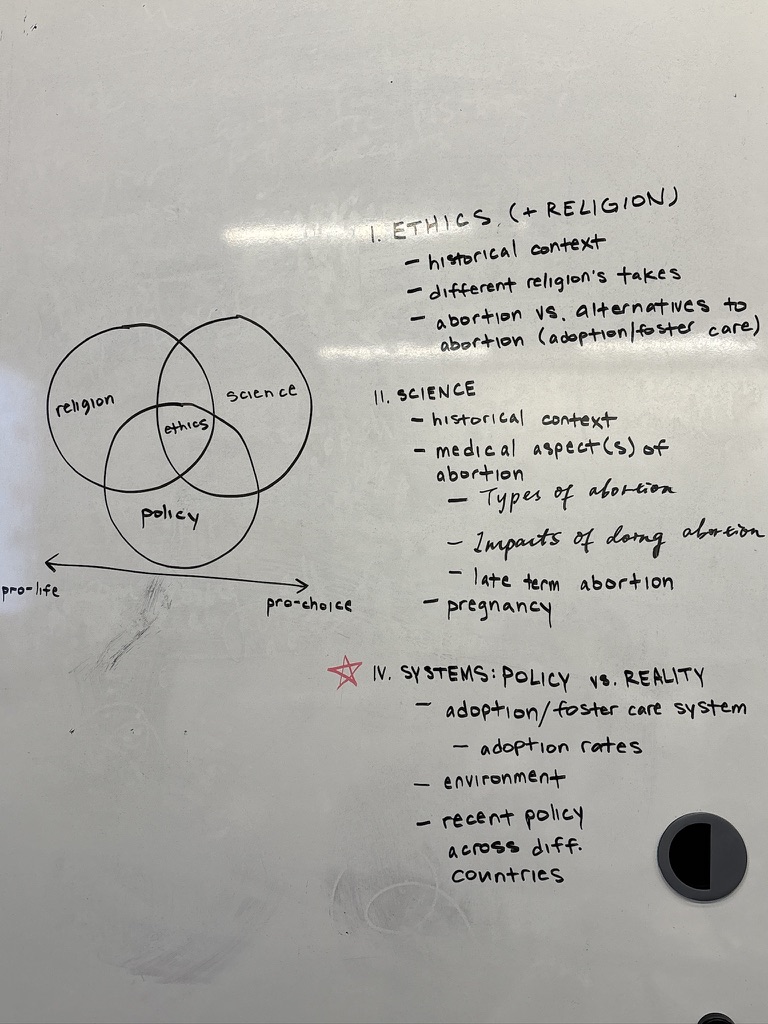 I. ETHICS (+ RELIGION)
– historical context
– different religion's takes
– abortion vs. alternatives to
abortion (adoption/foster care)
religion
science
ethics
policy
pro-life
pro-choice
II. SCIENCE
– historical context
– medical aspect(s) of
abortion
– Types of abortion
– Impacts of doing abortion
– late term abortion
– pregnancy
IV. SYSTEMS: POLICY vs. REALITY
– adoption/foster care system
– adoption rates
– environment
– recent policy
across diff.
countries